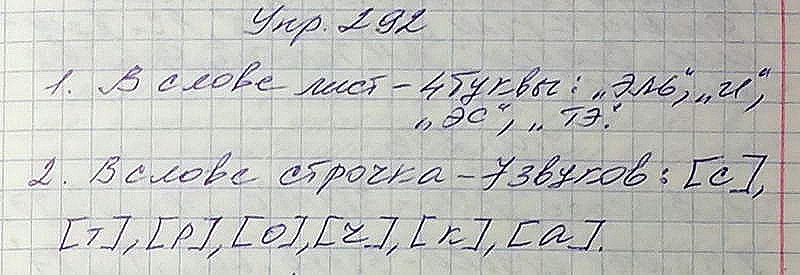 Упр. 292
1. В слове лист – 4 буквы: „эль", „и",
„эс", „тэ".
2. В слове строчка – 7 звуков: [с],
[т], [р], [о], [ч], [к], [а].